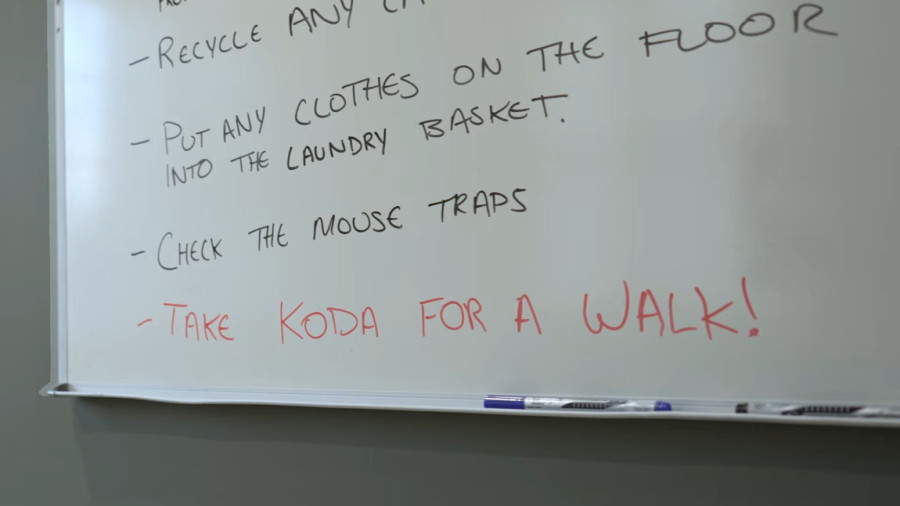 - RECYCLE ANY
- PUT ANY CLOTHES ON THE FLOOR
INTO THE LAUNDRY BASKET.
- CHECK THE MOUSE TRAPS
- TAKE KODA FOR A WALK!